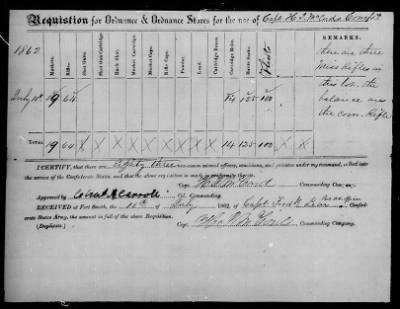 Requisition for Ordnance & Ordnance Stores for the use of Capt H. S.
1862
Muskets.
Rifles.
Shot Guns.
Shot Gun Cartridge.
Buck Shot.
Musket Cartridge.
Musket Caps.
Rifle Caps.
Powder.
Lead.
Cartridge Boxes.
Flints
REMARKS.
July 10th 19 64 14 125 100
there are three
Miss Rifles in
this lot. the
balance are
the com. Rifle
TOTAL 19 64 X X X X X X X X 14 125 100
I CERTIFY, that there are Eighty three non-commissioned officers, musicians, and privates under my command, mustered into
the service of the Confederate States, and that the above requisition is made in conformity thereto.
Capt. Commanding Company.
Approved by Col. Commanding.
RECEIVED at Fort Smith, the 10th of July 1862, of Capt. Confed-
erate States Army, the amount in full of the above Requisition.
(Duplicate.)
Capt. Commanding Company.